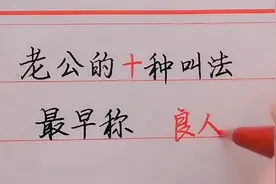 老公的十种叫法
最早称 良人